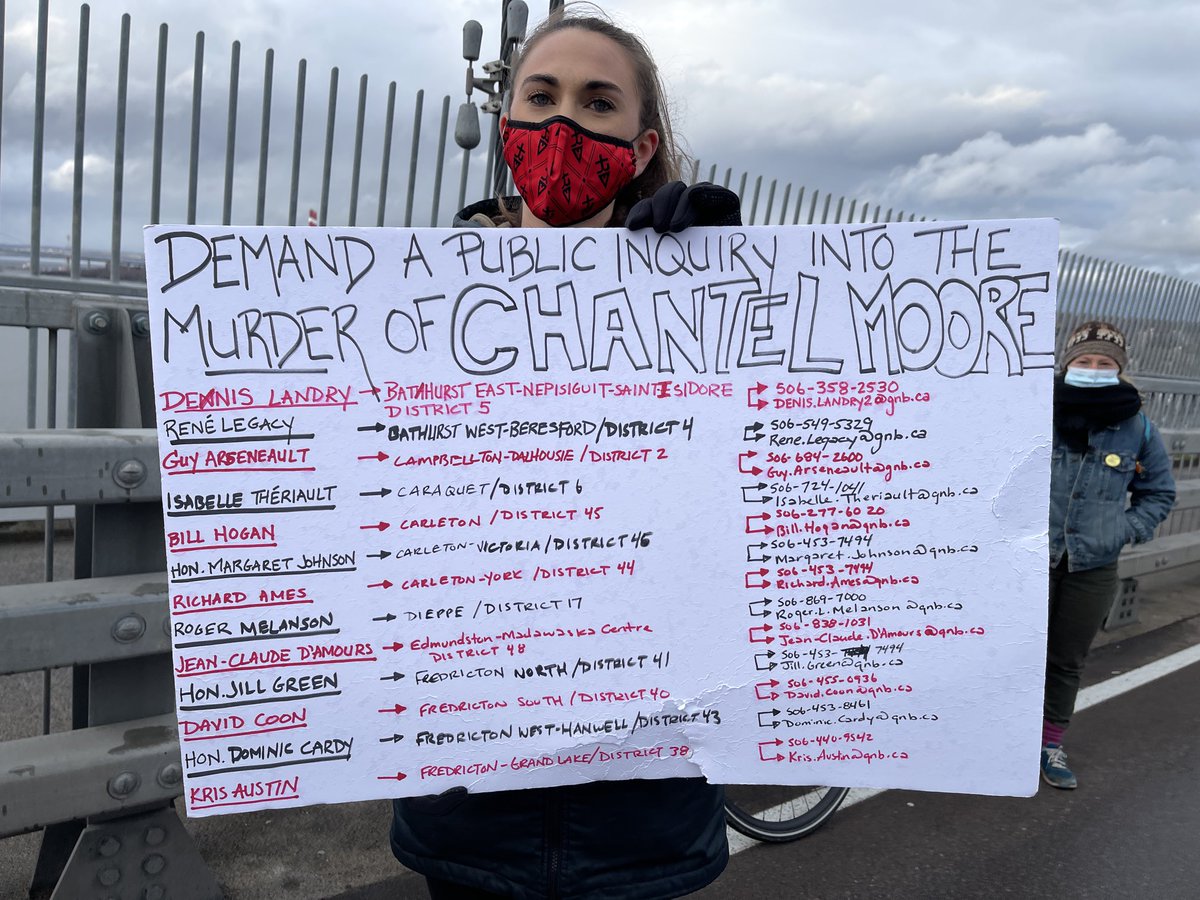 DEMAND A PUBLIC INQUIRY INTO THE
MURDER OF CHANTEL MOORE
DENNIS LANDRY → BATHURST EAST-NEPISIGUIT-SAINT ISIDORE DISTRICT 5 → 506-358-2530 → DENIS.LANDRY2@gnb.ca
RENÉ LEGACY → BATHURST WEST-BERESFORD/DISTRICT 4 → 506-549-5329 → Rene.Legacy@gnb.ca
GUY ARSENEAULT → CAMPBELLTON-DALHOUSIE/DISTRICT 2 → 506-684-2600 → Guy.Arseneault@gnb.ca
ISABELLE THÉRIAULT → CARAQUET/DISTRICT 6 → 506-724-1041 → Isabelle.Theriault@gnb.ca
BILL HOGAN → CARLETON/DISTRICT 45 → 506-277-6020 → Bill.Hogan@gnb.ca
HON. MARGARET JOHNSON → CARLETON-VICTORIA/DISTRICT 46 → 506-453-7494 → Margaret.Johnson@gnb.ca
RICHARD AMES → CARLETON-YORK/DISTRICT 44 → 506-453-7494 → Richard.Ames@gnb.ca
ROGER MELANSON → DIEPPE/DISTRICT 17 → 506-869-7000 → Roger.L.Melanson@gnb.ca
JEAN-CLAUDE D'AMOURS → Edmundston-Madawaska Centre DISTRICT 48 → 506-838-1031 → Jean-Claude.D'Amours@gnb.ca
HON. JILL GREEN → FREDRICTON NORTH/DISTRICT 41 → 506-453-7494 → Jill.Green@gnb.ca
DAVID COON → FREDRICTON SOUTH/DISTRICT 40 → 506-455-0936 → David.Coon@gnb.ca
HON. DOMINIC CARDY → FREDRICTON WEST-HANWELL/DISTRICT 43 → 506-453-8461 → Dominic.Cardy@gnb.ca
KRIS AUSTIN → FREDRICTON-GRAND LAKE/DISTRICT 38 → 506-440-9542 → Kris.Austin@gnb.ca